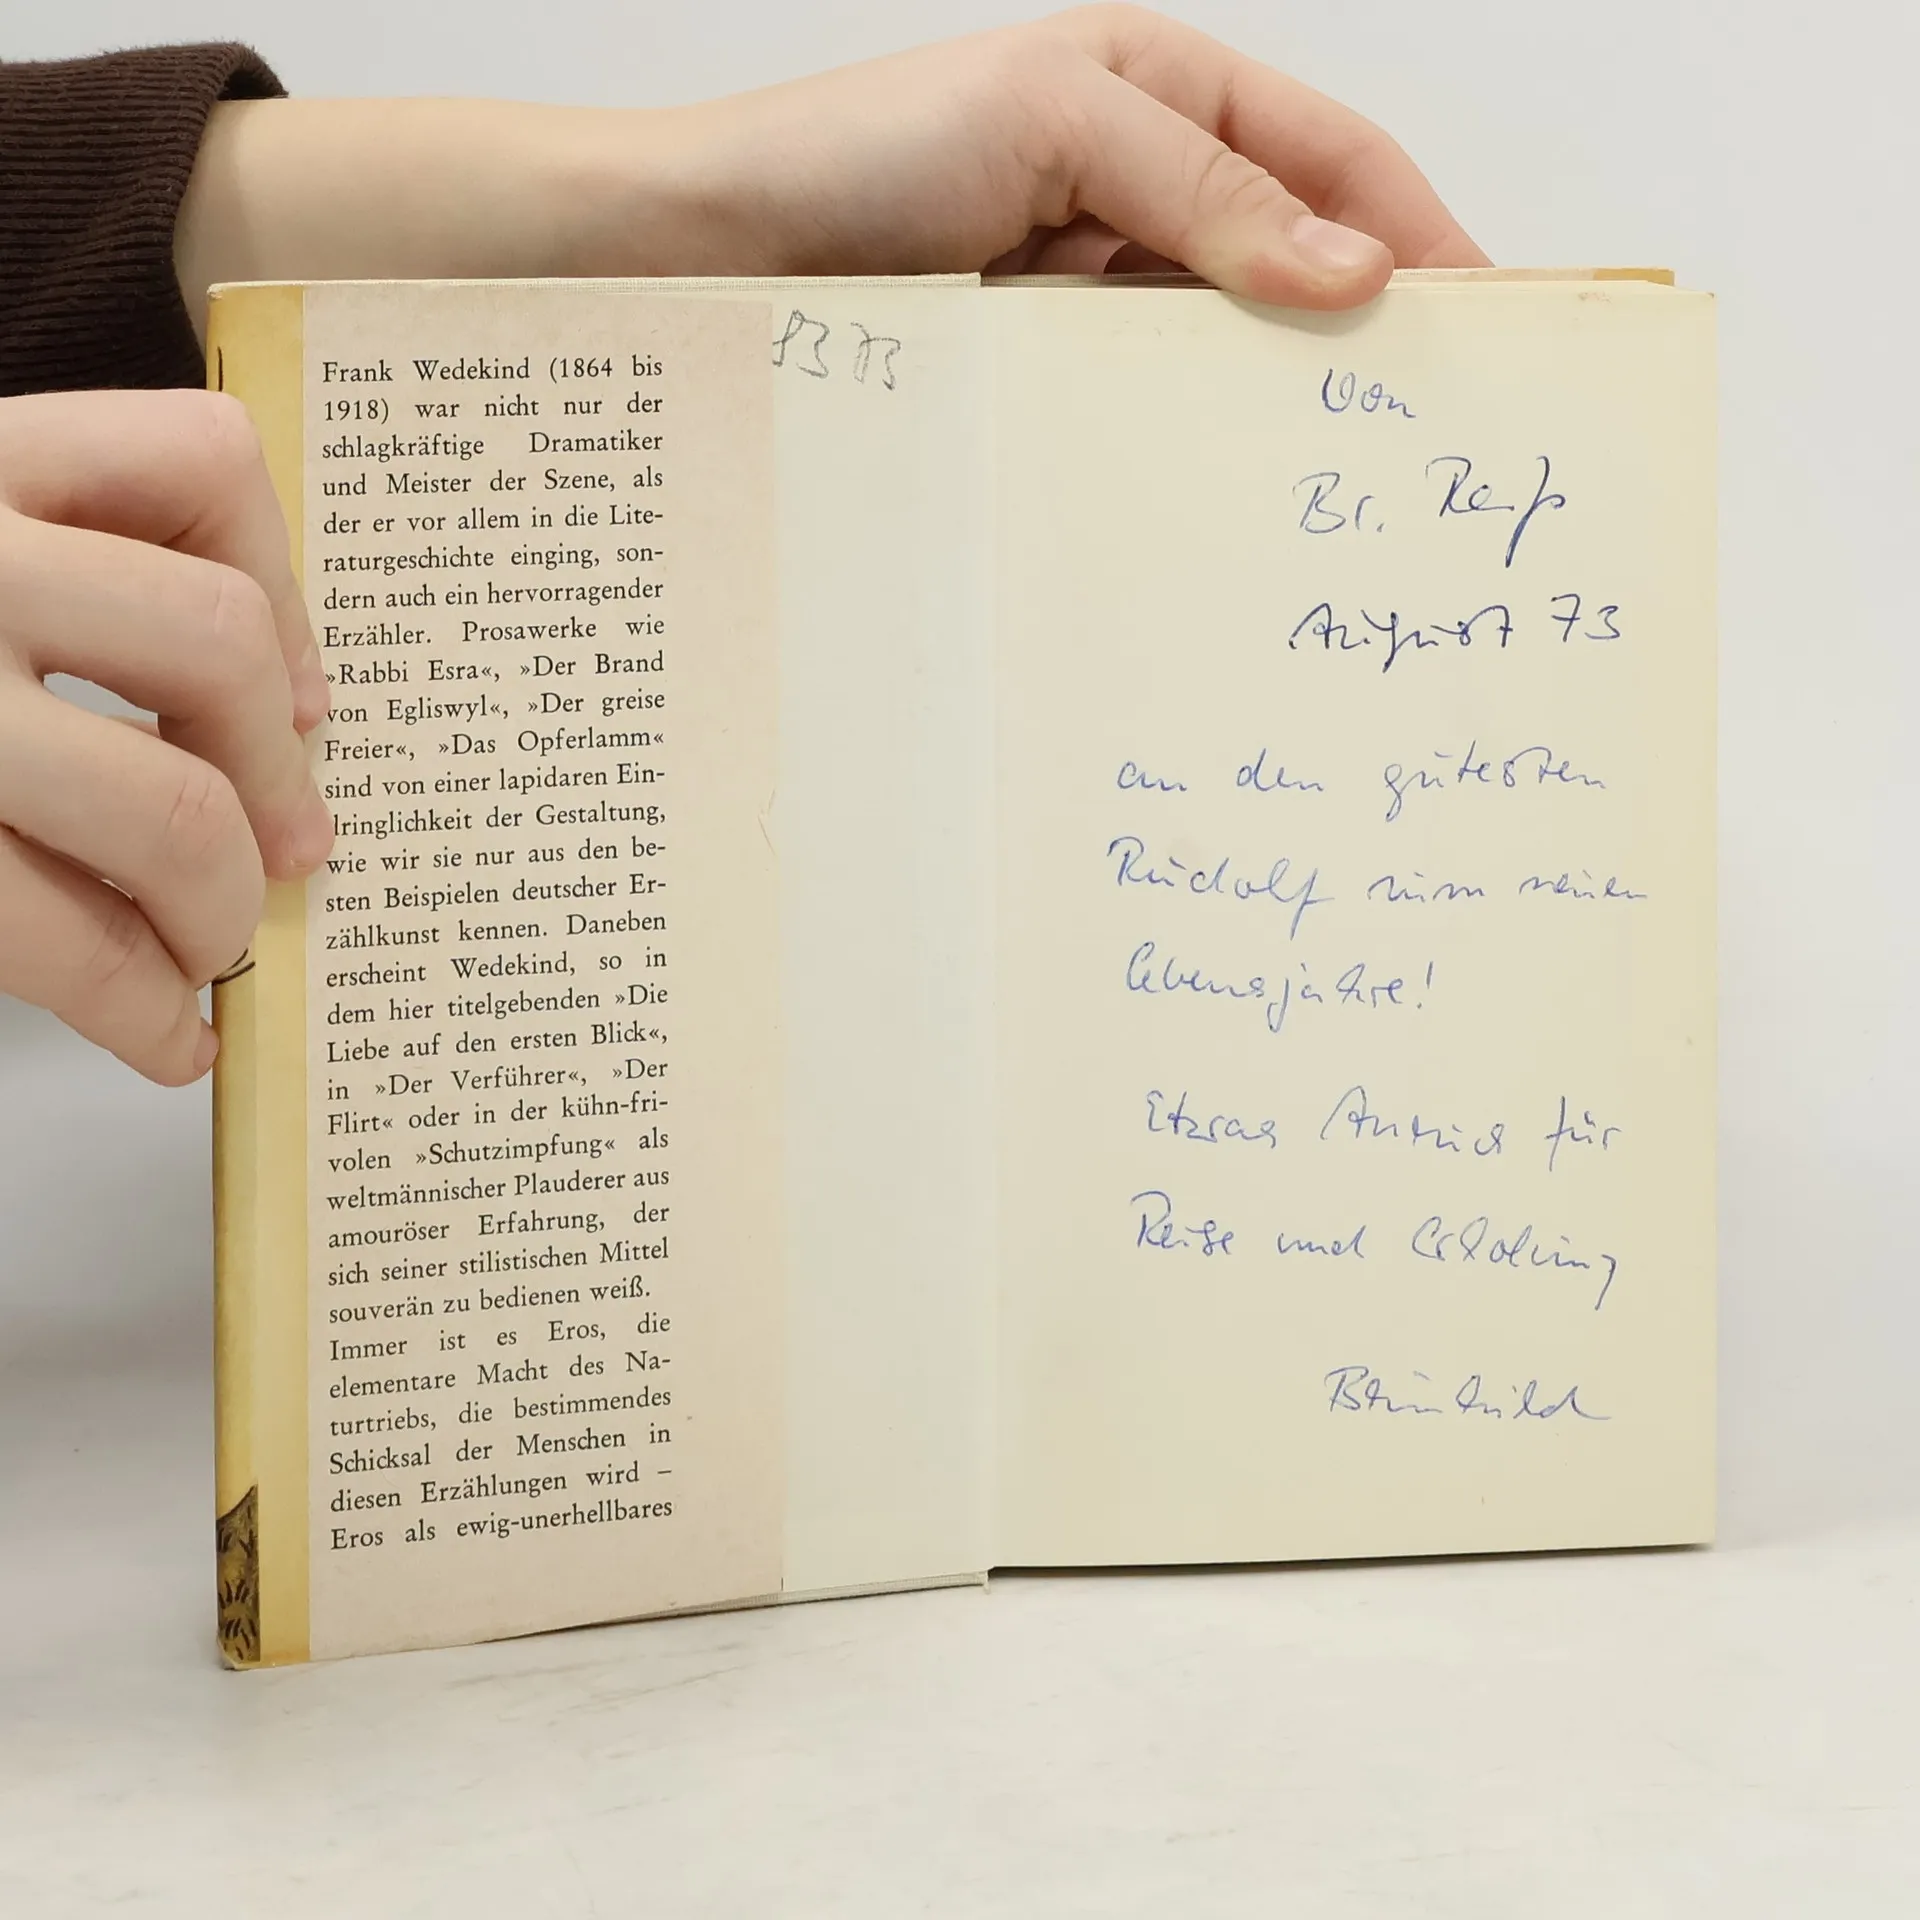 Frank Wedekind (1864 bis
1918) war nicht nur der
schlagkräftige Dramatiker
und Meister der Szene, als
der er vor allem in die Lite-
raturgeschichte einging, son-
dern auch ein hervorragender
Erzähler. Prosawerke wie
»Rabbi Esra«, »Der Brand
von Egliswyl«, »Der greise
Freier«, »Das Opferlamm«
sind von einer lapidaren Ein-
dringlichkeit der Gestaltung,
wie wir sie nur aus den be-
sten Beispielen deutscher Er-
zählkunst kennen. Daneben
erscheint Wedekind, so in
dem hier titelgebenden »Die
Liebe auf den ersten Blick«,
in »Der Verführer«, »Der
Flirt« oder in der kühn-fri-
volen »Schutzimpfung« als
weltmännischer Plauderer aus
amouröser Erfahrung, der
sich seiner stilistischen Mittel
souverän zu bedienen weiß.
Immer ist es Eros, die
elementare Macht des Na-
turtriebs, die bestimmendes
Schicksal der Menschen in
diesen Erzählungen wird –
Eros als ewig-unerhellbares
Von
Br.
August 73
an den gutesten
Rudolf zum neuen
Lebensjahre!
Etwas für
Reise und Erholung
Brünhild